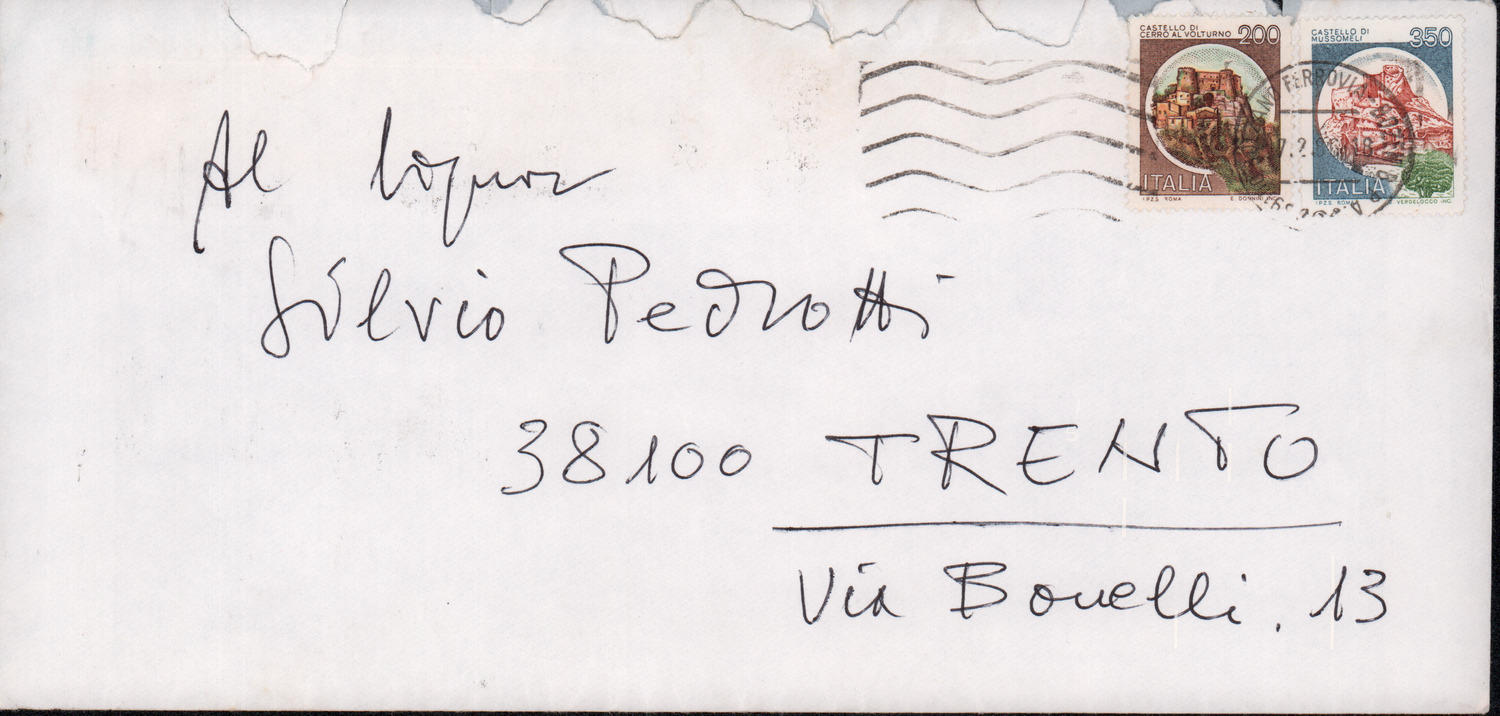 CASTELLO DI
CERRO AL VOLTURNO 200
ITALIA
I.P.Z.S. ROMA E. DONNINI INC.
CASTELLO DI
MUSSOMELI 350
ITALIA
I.P.Z.S. ROMA VERGELOCCO INC.
FERROVIA
Al Signor
Silvio Pedrotti
38100 TRENTO
Via Bonelli. 13